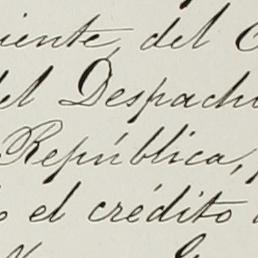 iente, del C
del Despacho
República,
o el crédito